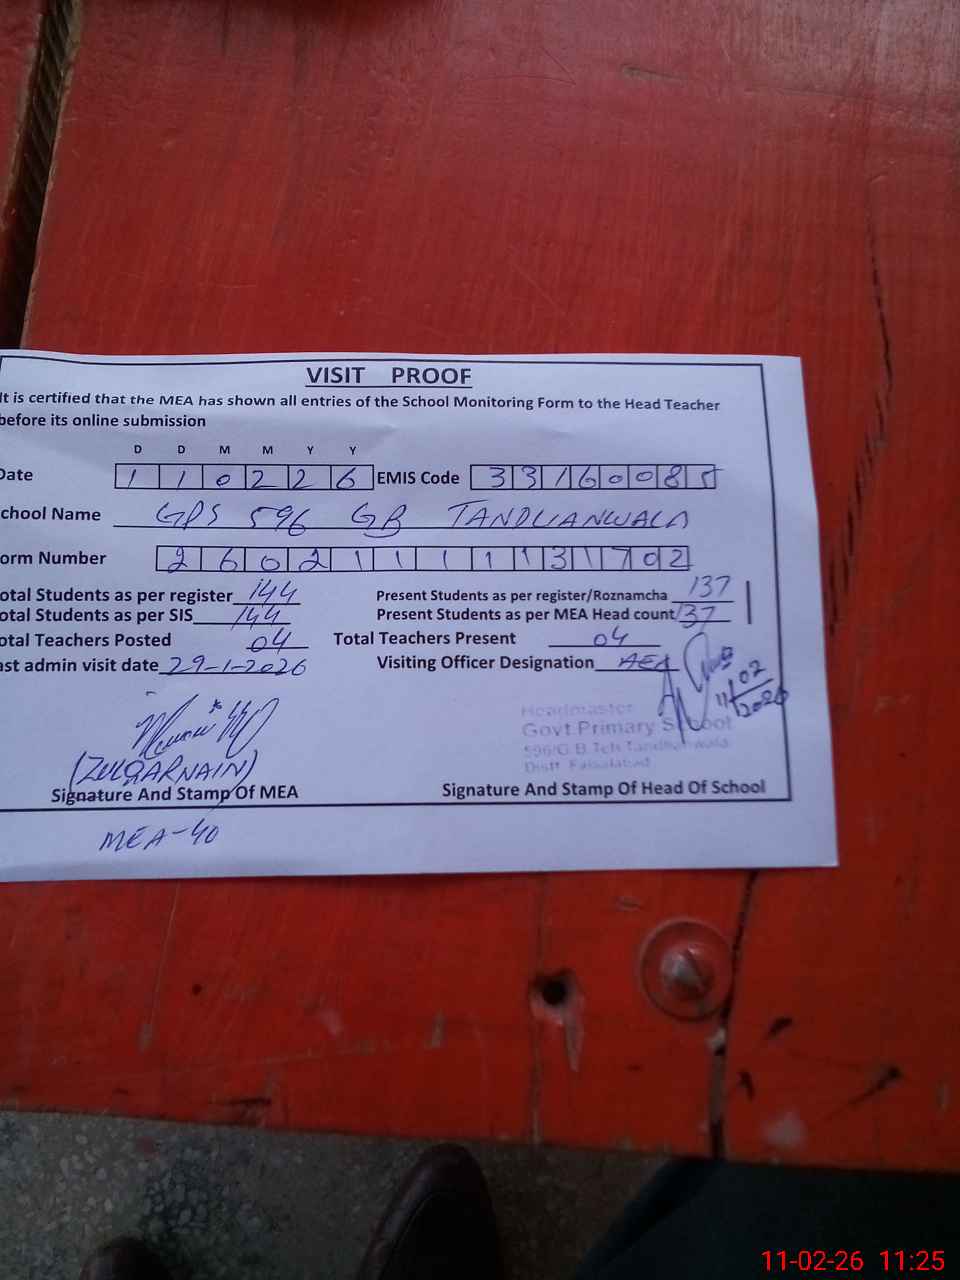 VISIT PROOF
It is certified that the MEA has shown all entries of the School Monitoring Form to the Head Teacher
before its online submission
D D M M Y Y
Date 1 1 0 2 2 6 EMIS Code 3 3 1 6 0 0 8 5
chool Name GPS 596 GB TANDLIANWALA
orm Number 2 6 0 2 1 1 1 1 1 3 1 7 0 2
otal Students as per register 144 Present Students as per register/Roznamcha 137
otal Students as per SIS 144 Present Students as per MEA Head count 137
otal Teachers Posted 04 Total Teachers Present 04
ast admin visit date 29-1-2026 Visiting Officer Designation AEA
11/02/2026
Headmaster
Govt.Primary School
596/G.B.Teh.Tandlianwala
Distt. Faisalabad
(ZULQARNAIN)
Signature And Stamp Of MEA Signature And Stamp Of Head Of School
MEA-40
11-02-26 11:25